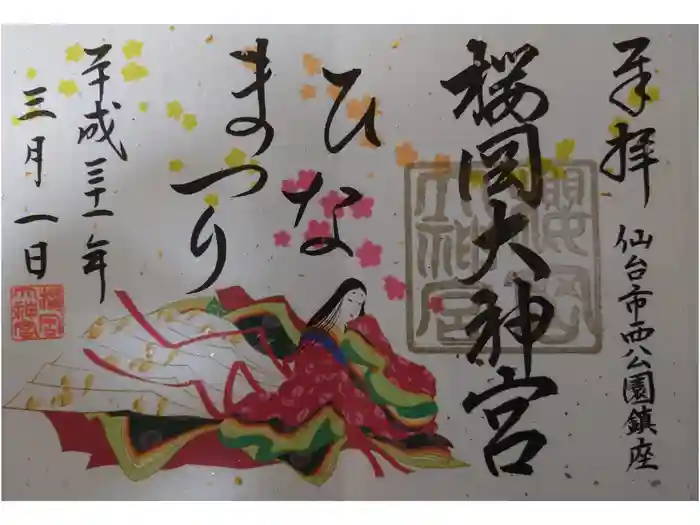 奉拝
仙台市西公園鎮座
桜岡大神宮
ひな
まつり
平成三十一年
三月一日